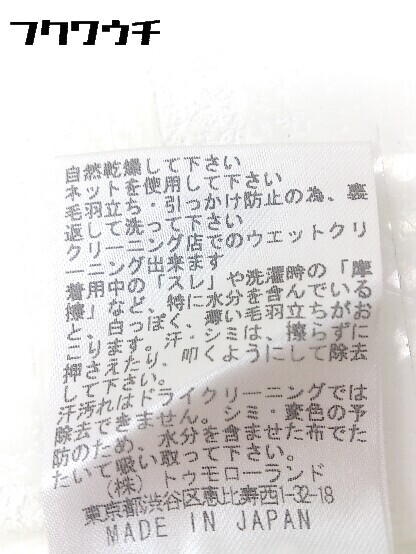 フクワウチ
自然乾燥して下さい
ネットを使用して下さい
毛羽立ち・引っかけ防止の為、裏
返して洗って下さい
クリーニング店でのウエットクリ
ーニング出来ます
着用中の「スレ」や洗濯時の「摩
擦」など、特に水分を含んでいる
と、白っぽく、薄い毛羽立ちがお
こります。汗・シミは、擦らずに
押さえたり、叩くようにして除去
して下さい。
汗汚れはドライクリーニングでは
除去できません。シミ・変色の予
防のため、水分を含ませた布で
たいて吸い取って下さい。
(株) トゥモローランド
東京都渋谷区恵比寿西1-32-18
MADE IN JAPAN